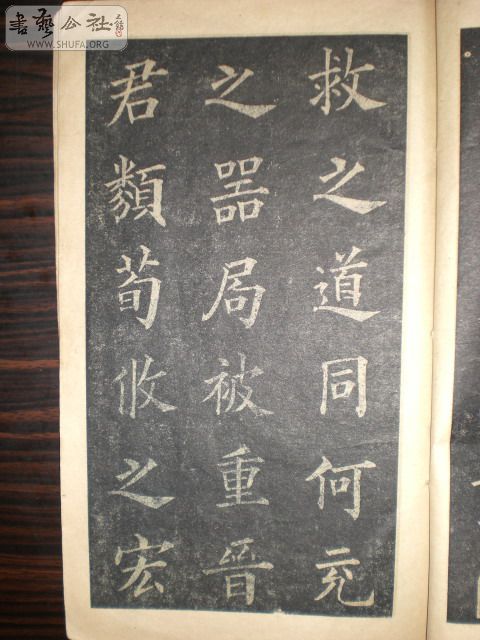 書藝公社
WWW.SHUFA.ORG
救之道同何充
之器局被重晉
君類荀攸之宏